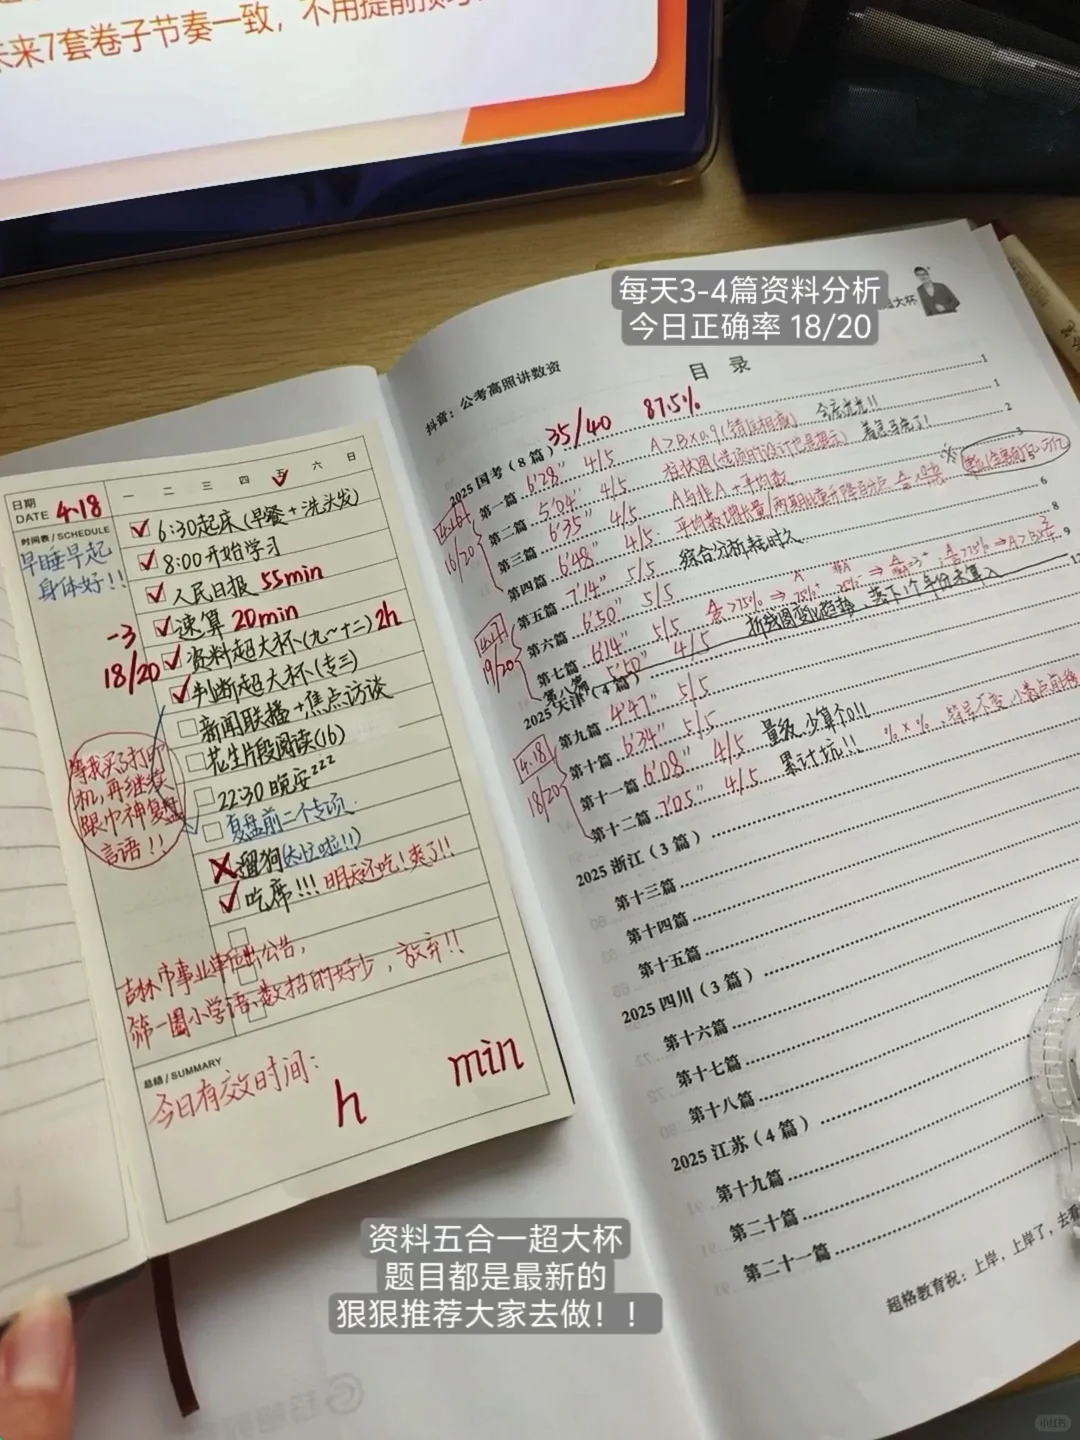 未来7套卷子节奏一致，不用提前预
每天3-4篇资料分析
今日正确率 18/20
日期
DATE 4.18
一 二 三 四 五 六 日
时间表 / SCHEDULE
早睡早起
身体好！！
6:30起床(早餐+洗头发)
8:00开始学习
人民日报 55min
速算 20min
-3
18/20
资料超大杯(九~十二) 2h
判断超大杯(专三)
新闻联播+焦点访谈
花生片段阅读(16)
22:30 晚安zzz
复盘前二个专项
遛狗(太忙啦!!)
吃席!!! 明天还吃!爽了!!
等我买了打印
机,再继续
跟巾神复盘
言语!!
吉林市事业单位出公告,
第一圈小学语、数招的好少,放弃!!
总结 / SUMMARY
今日有效时间:
h min
抖音：公考高照讲数资
超大杯
目 录
35/40 87.5%
2025 国考（8 篇） 1
第一篇 6'28" 4/5 A>B×0.9(错位相减) 1
第二篇 5'04" 4/5 柱状图(选项的设计也是提示) 着急写完了! 2
第三篇 6'35" 4/5 A与非A+平均数 3
第四篇 6'48" 4/5
第五篇 7'14" 5/5 综合分析耗时久 6
第六篇 6'50" 5/5 8
第七篇 6'14" 5/5 9
第八篇 5'50" 4/5 折线图变化趋势，落下1个年份未算入
2025 天津（4 篇）
第九篇 4'47" 5/5
第十篇 6'34" 5/5
第十一篇 6'08" 4/5 量级,少算个0!!
第十二篇 7'05" 4/5 累计坑!!
4.16
16/20
4.17
19/20
4.18
18/20
2025 浙江（3 篇）
第十三篇
第十四篇
第十五篇
2025 四川（3 篇）
第十六篇
第十七篇
第十八篇
2025 江苏（4 篇）
第十九篇
第二十篇
第二十一篇
超格教育祝：上岸，上岸了，去看
资料五合一超大杯
题目都是最新的
狠狠推荐大家去做！！
小红书